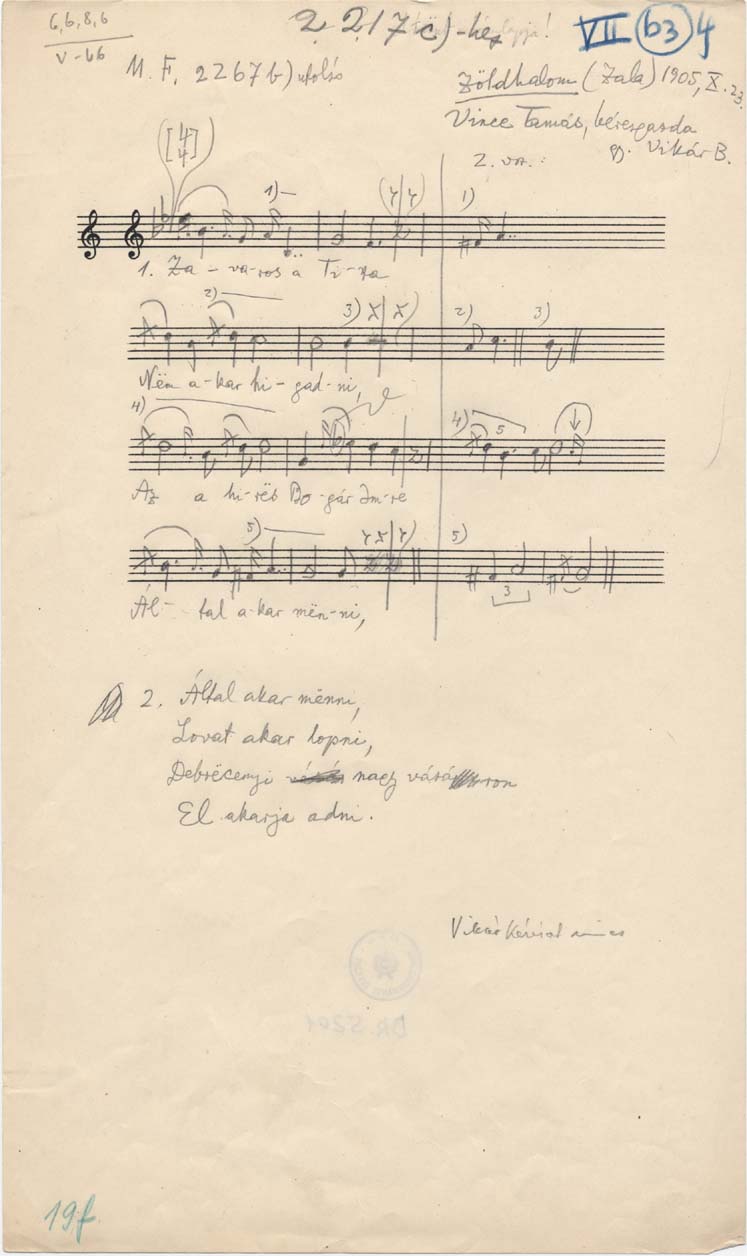 6, 6, 8, 6
V - 66
2217 c) - hez
VII b3 4
M. F. 2267 b) utolsó
Zöldhalom (Zala) 1905, X. 23.
Vince Tamás, béresgazda
gy. Vikár B.
[4/4]
2. vsz.:
1)
1)
1. Za - va-ros a Ti-sza
2) 3) 2) 3)
Nëm a-kar hi-gad-ni,
4) 4) 5
Az a hi-rës Bo-gár Im-re
5) 5) 3
Ál - tal a-kar mën-ni,
2. Által akar mënni,
Lovat akar lopni,
Debrëcenyi nagy vásáron
El akarja adni.
Vikár
BR. 5201
19f.